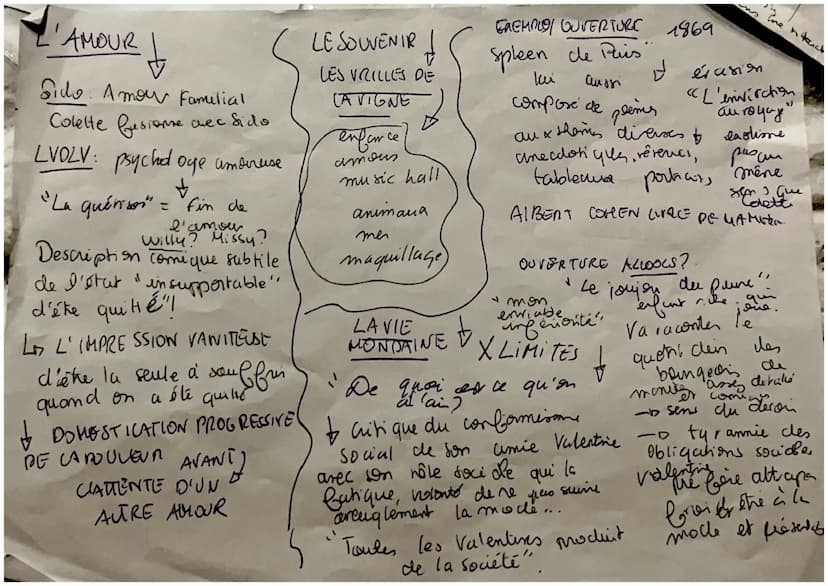 L'AMOUR
Sido : Amour Familial
Colette fusionne avec Sido
LVDLV : psychologie amoureuse
"La guérison" = fin de
l'amour
Willy ? Missy ?
Description comique subtile
de l'état "insupportable"
d'être quitté"!
L'IMPRESSION VANITEUSE
d'être la seule à souffrir
quand on a été quitté
DOMESTICATION PROGRESSIVE
DE LA DOULEUR AVANT
L'ATTENTE D'UN
AUTRE AMOUR
LE SOUVENIR
LES VRILLES DE
LA VIGNE
enfance
amours
music hall
animaux
mer
maquillage
LA VIE
MONDAINE
"De quoi est ce qu'on
a l'air?
Critique du conformisme
social de son amie Valentine
avec son rôle sociale qui la
fatigue, volonté de ne pas suivre
aveuglement la mode...
"Toutes les Valentines produit
de la société".
EXEMPLO/OUVERTURE 1869
Spleen de Paris"
lui aussi
composé de poèmes
aux thèmes diverses
anecdotiques, rêveries,
tableaux portraits,
évasion
"L'invitation
au voyage"
exotisme
pas au
même
sens que
Colette
ALBERT COHEN LIVRE DE MA MÈRE
OUVERTURE ALCOOLS?
"Le joujou du pauvre":
enfant riche qui
joue.
"mon
enviable
infériorité"
X LIMITES
Va raconter le
quotidien des
bourgeois de
manière assez détaillé
et comique
sens du devoir
tyrannie des
obligations sociales
Valentine
préfère attraper
froid et être à la
mode et